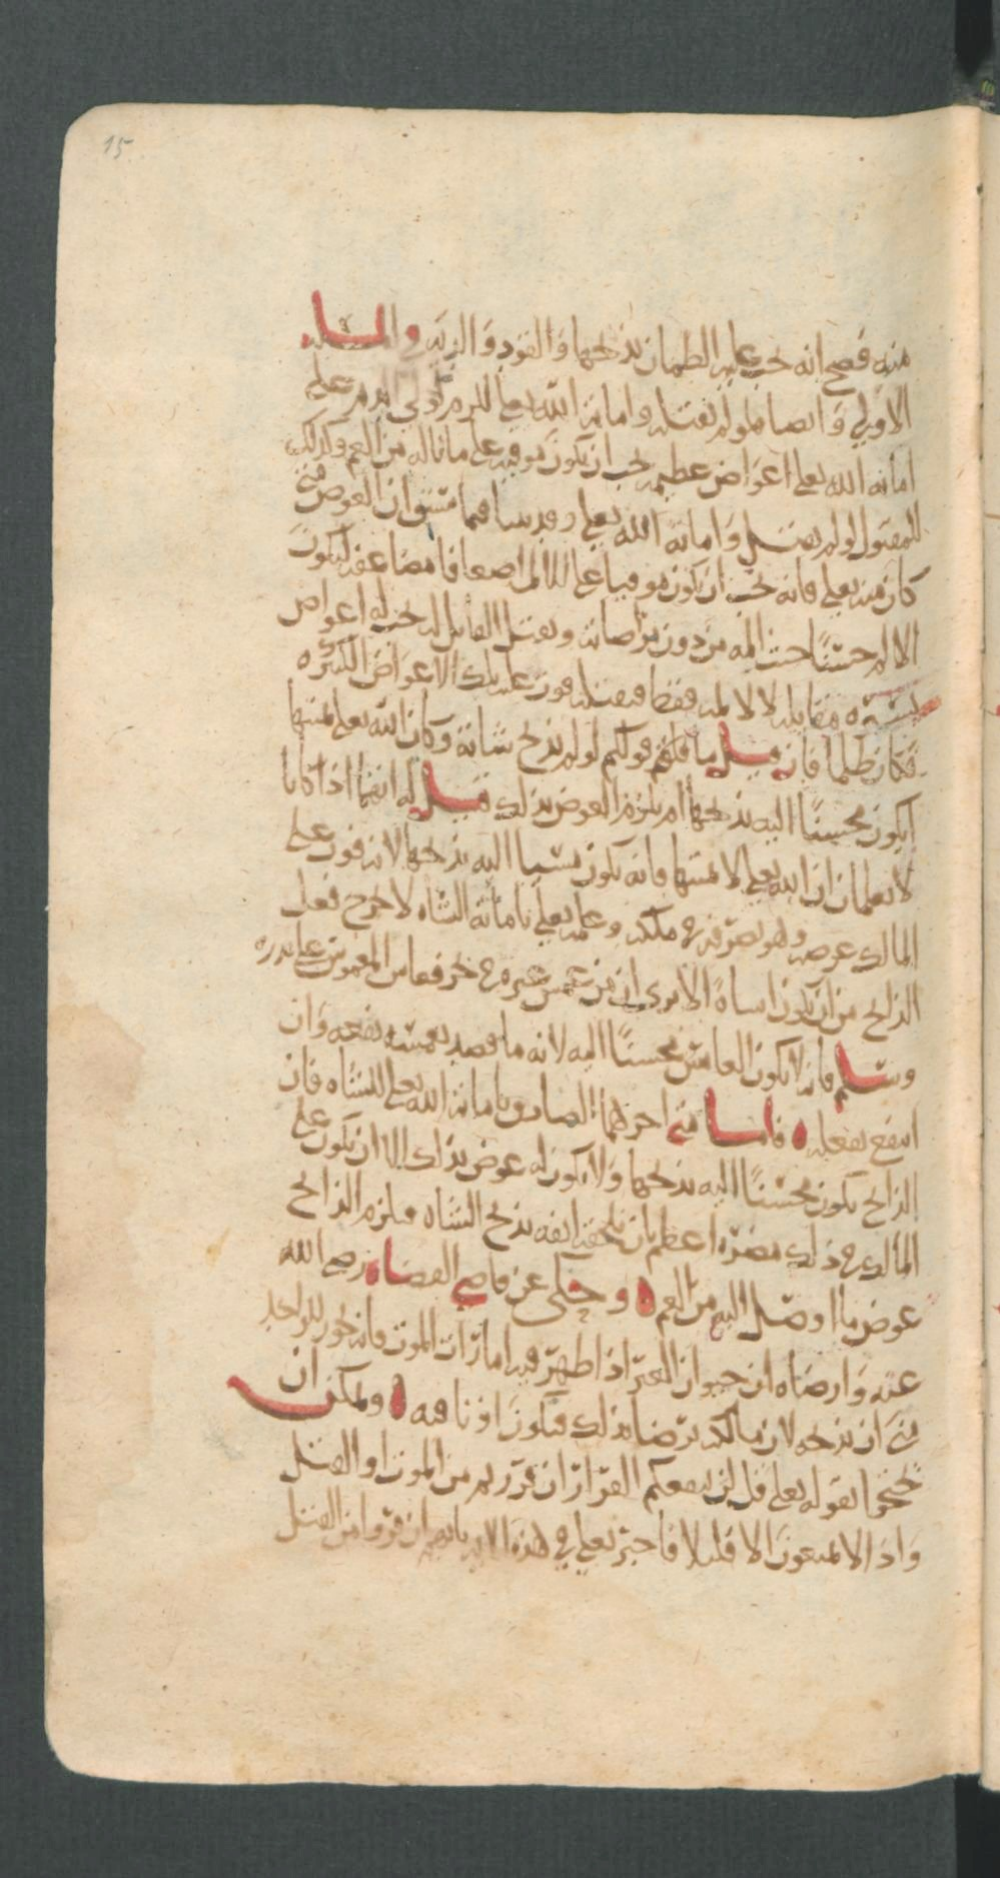 15
منه فصح انه يجب عليه الضمان بذبحها والقود والدية في المسلة
الاولى وايضا فلو لم يقتله واماته الله تعالى للزم تعالى
اماته الله تعالى اعواض عظيم يجب ان يكون موفيه على ما ناله من الغم وكذلك
المقتول لو لم يقتل واماته الله تعالى وقد بينا فيما سبق ان العوض متى
كان منه تعالى فانه يجب ان يكون موفيا على الالم اضعافا مضاعفه ليكون
الالم حسنا حيث المه من دون مراضاته وبقتل القاتل له يجب له اعواض
يسيره مقابله لالامه فقط فبقتله فوت عليه تلك الاعواض الكثيره
فكان ظلما فان قيل ما قلتم قولكم لو لم يذبح شاته وكان الله تعالى يميتها
ايكون محسنا اليه بذبحها ام يلزم العوض بذلك قيل له انهما اذا كانا
لا يعلمان ان الله تعالى لا يميتها فانه يكون مسيا اليه بذبحها لانه فوت على
المالك عرضه وهو تصرفه في ملكه وعلمه تعالى باماتة الشاه لا يخرج فعل
الذابح من ان يكون اساة الا ترى ان من غمس غيره في بحر فعاش المغموس
وسلم فانه لا يكون الغامس محسنا اليه لانه ما قصد بغمسه نفعه وان
انتفع بفعله فاما متى اخبرهما الصادق باماتة الله تعالى للشاه فان
الذابح يكون محسنا اليه بذبحها ولا يكون له عوض بذلك الا ان يكون على
المالك في ذلك مضره اعظم بان يلحقه انفه بذبح الشاه فيلزم الذابح
عوض ما اوصل اليه من الغم وحكى عن قاضي القضاه رضي الله
عنه وارضاه ان حيوان الغير اذا ظهر فيه امارات الموت فانه يجوز للواحد
منا ان يذبحه لان مالكه يرضا بذلك فيكون اذنا فيه ويمكن ان
يحتجوا بقوله تعالى قل لن ينفعكم الفرار ان فررتم من الموت او القتل
واذا لا تمتعون الا قليلا فاخبر تعالى في هذه الايه بانهم ان فروا من القتل